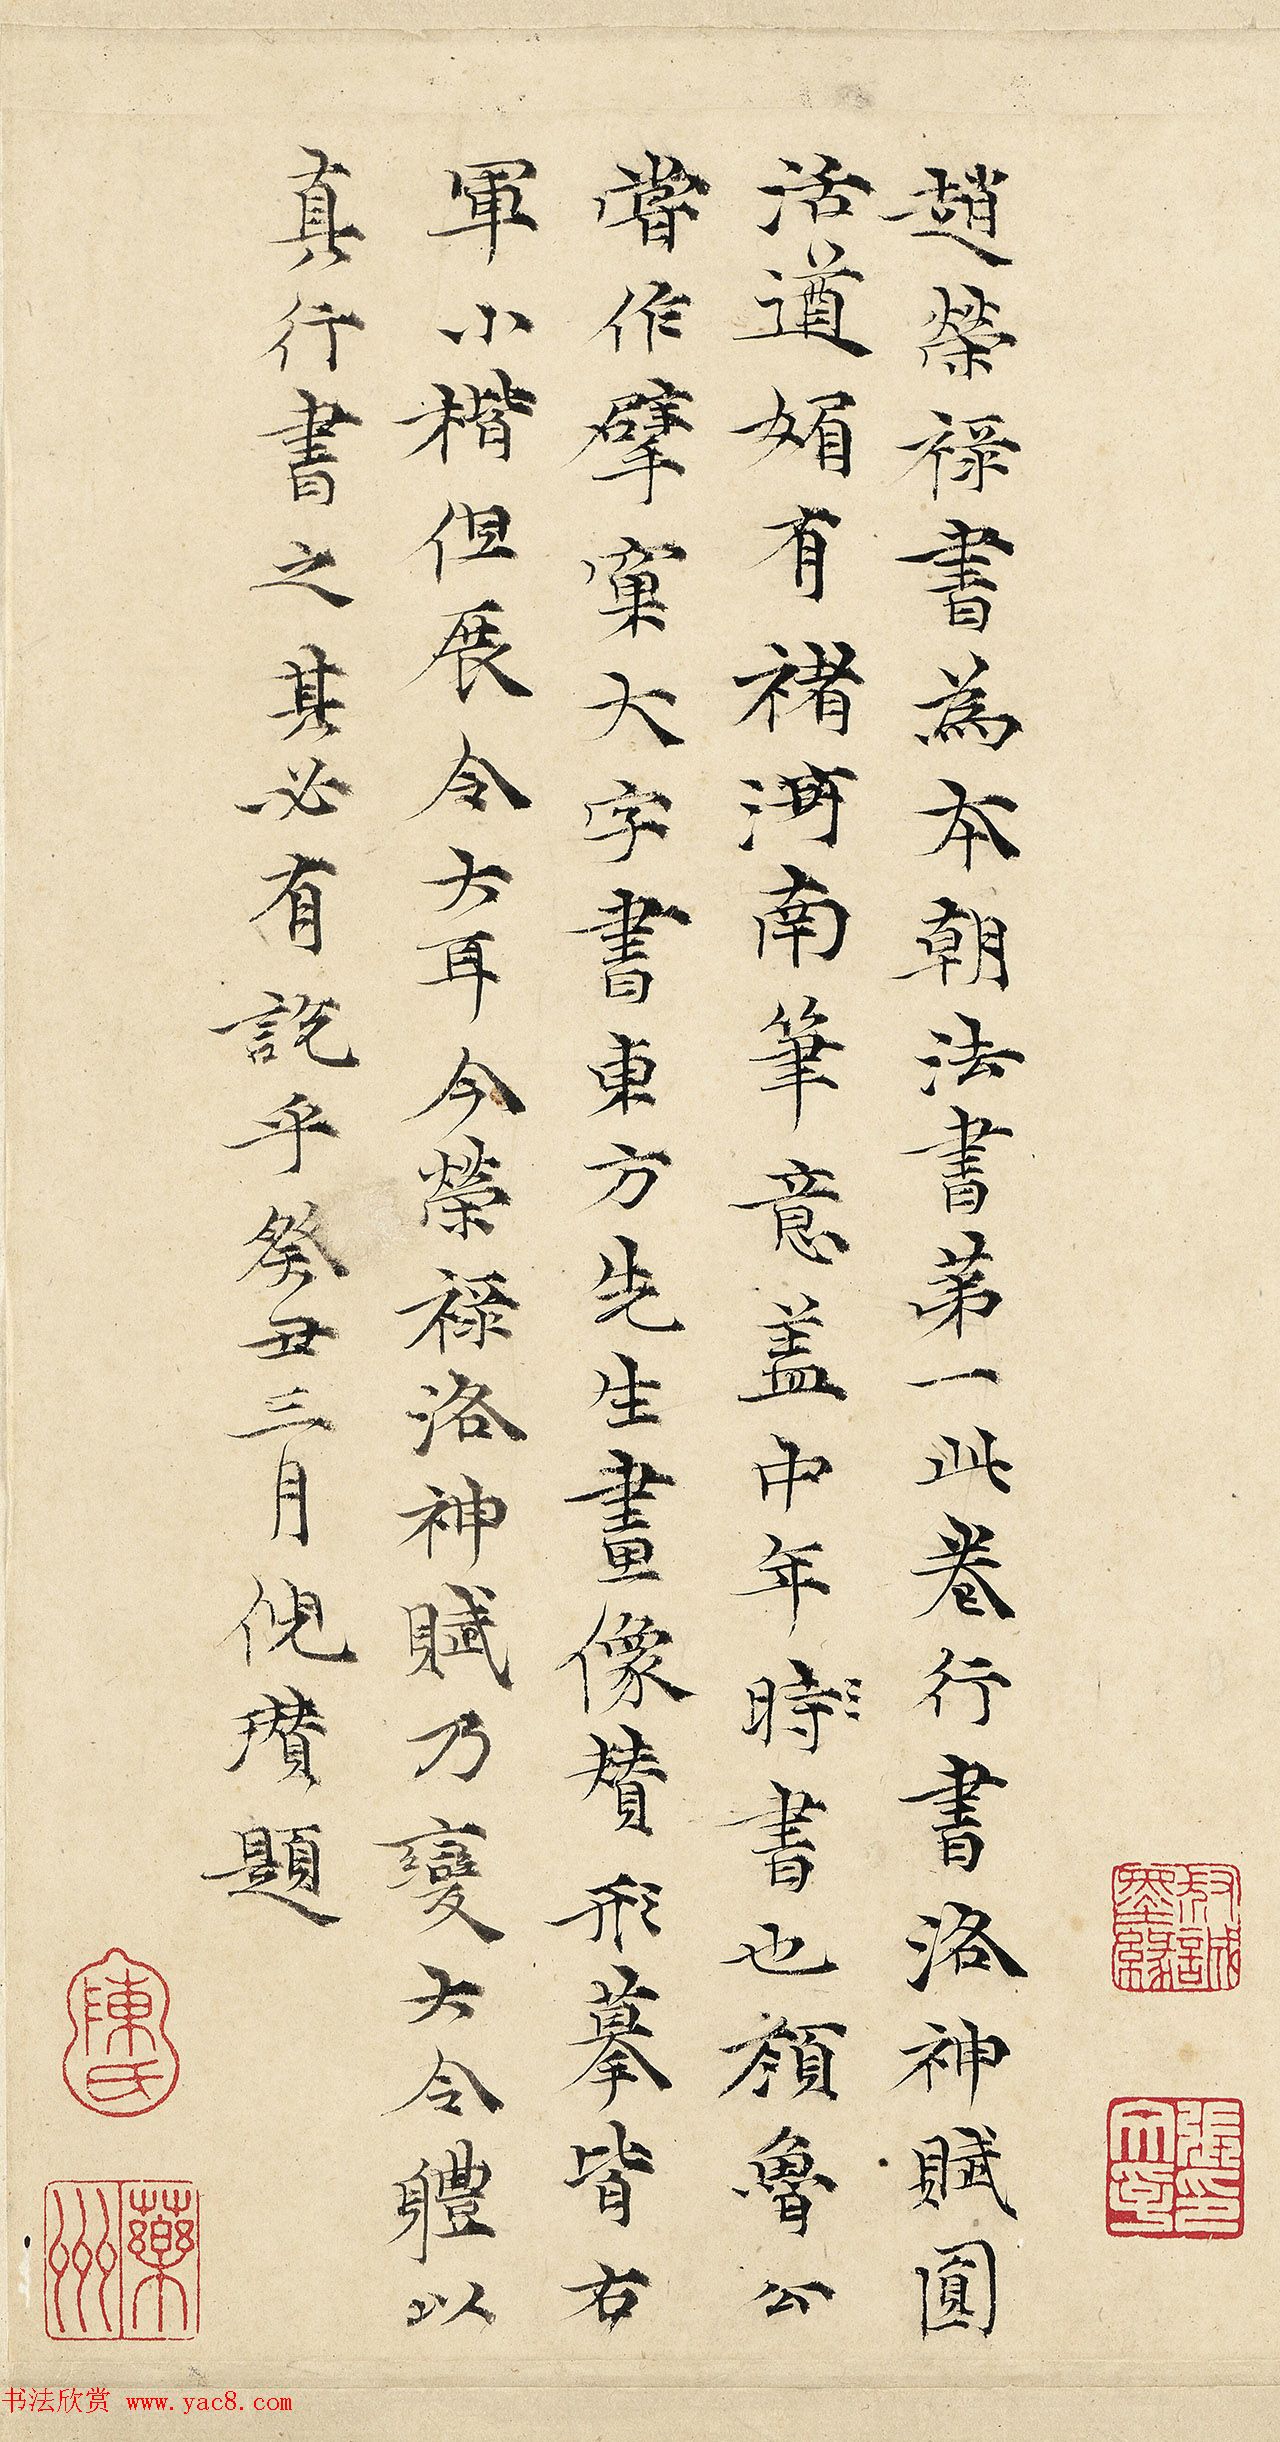 趙榮祿書為本朝法書第一此卷行書洛神賦圓
活遒媚有褚河南筆意蓋中年時書也顏魯公
嘗作擘窠大字書東方先生畫像賛形摹皆右
軍小楷但展令大耳今榮祿洛神賦乃變大令軆以
真行書之其必有説乎癸丑三月倪瓚題
陳氏
蘂州
书法欣赏 www.yac8.com